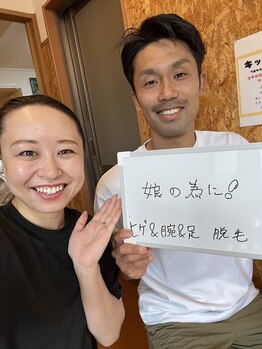 娘の為に!
ヒゲ&腕&足 脱毛
キッ